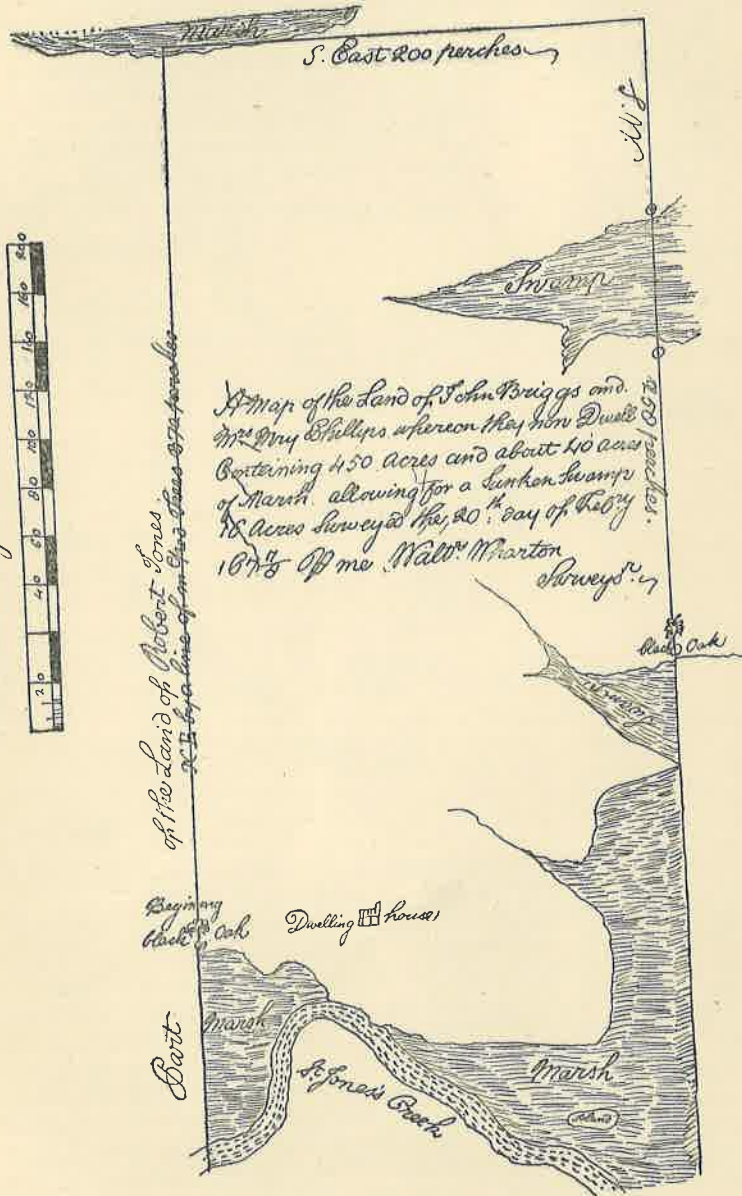 Marsh
S. East 200 perches
S.W.
Swamp
250 perches.
A Map of the Land of John Briggs and
Mrs Mry Phillips whereon they now Dwell
Containing 450 Acres and about 40 acres
of Marsh. allowing for a Sunken Swamp
Acres Surveyed the, 20th day of Febry
167 P me Waltr Wharton
Surveyr.
20
40
60
80
100
120
160
200
Part of the Land of Robert Jones
N E by a line of m trees 372 perches
black Oak
Swamp
Begining
black Oak
Dwelling house
Marsh
St. Jones's Creek
Marsh
Island